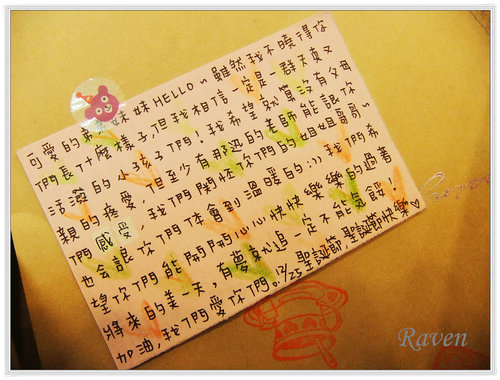 可愛的弟弟妹妹HELLO~雖然我不曉得你
們長什麼樣子但我相信一定是一群天真又
活潑的小孩子們!我希望就算沒有父母
親的疼愛,但至少有那邊的老師能讓你
們感受,我們關懷你們的姐姐哥哥~
也會讓你們體會到溫暖的...我們希
望你們能開開心心快快樂樂的過著
將來的美一天,有夢就追一定不能氣餒!
加油,我們愛你們0.12/25聖誕節,聖誕節快樂♡
Raven